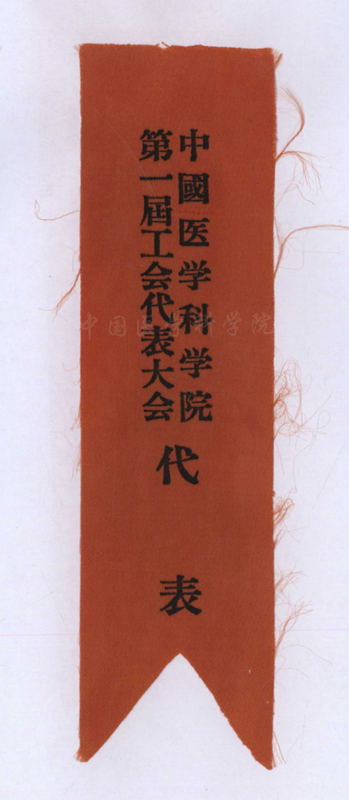 中國医学科学院
第一屆工会代表大会
代表
中国医学科学院